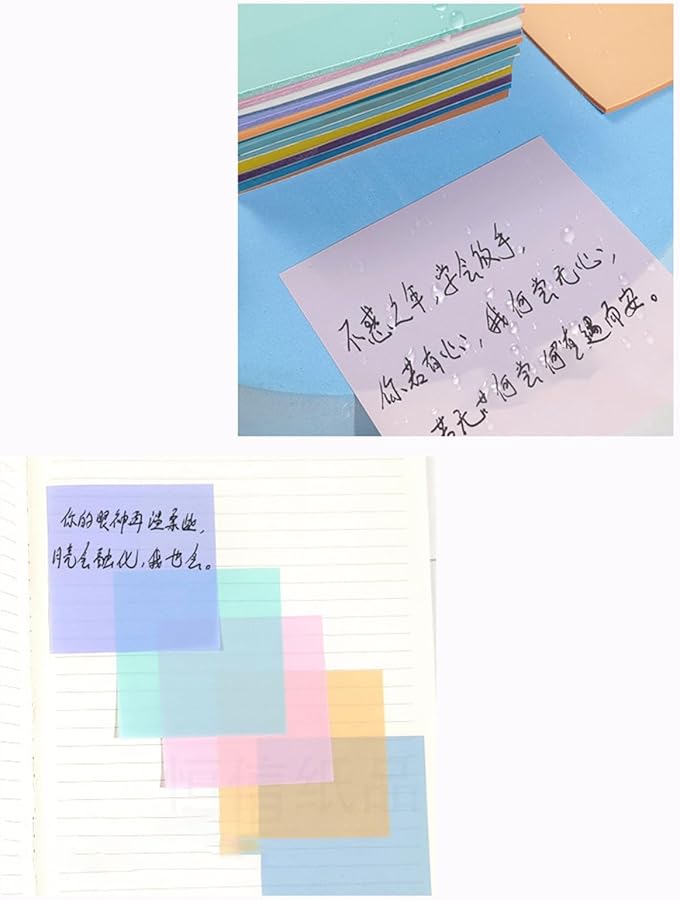 不惑之年,学会放手,
你若有心,我何尝无心,
若无 何尝何在遇而安。
你的眼神再温柔些,
月亮会融化,我也会。